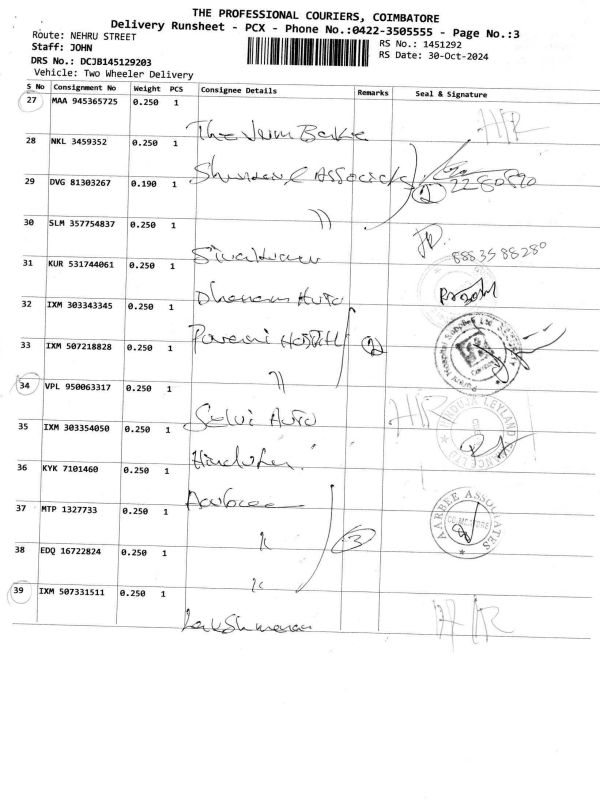 THE PROFESSIONAL COURIERS, COIMBATORE
Delivery Runsheet - PCX - Phone No.:0422-3505555 - Page No.:3
Route: NEHRU STREET
RS No.: 1451292
Staff: JOHN
RS Date: 30-Oct-2024
DRS No.: DCJB145129203
Vehicle: Two Wheeler Delivery
S No Consignment No Weight PCS Consignee Details Remarks Seal & Signature
27 MAA 945365725 0.250 1
H/R
28 NKL 3459352 0.250 1
29 DVG 81303267 0.190 1 Associates 2
30 SLM 357754837 0.250 1 "
31 KUR 531744061 0.250 1 Sivakumar
32 IXM 303343345 0.250 1 Dhanam Auto
33 IXM 507218828 0.250 1 2
34 VPL 950063317 0.250 1 "
35 IXM 303354050 0.250 1 Selvi Auto H/R
36 KYK 7101460 0.250 1
37 MTP 1327733 0.250 1 Aarbee
AARBEE ASSOCIATES
COIMBATORE
38 EDQ 16722824 0.250 1 " 3
39 IXM 507331511 0.250 1 "
Lakshmanan H/R